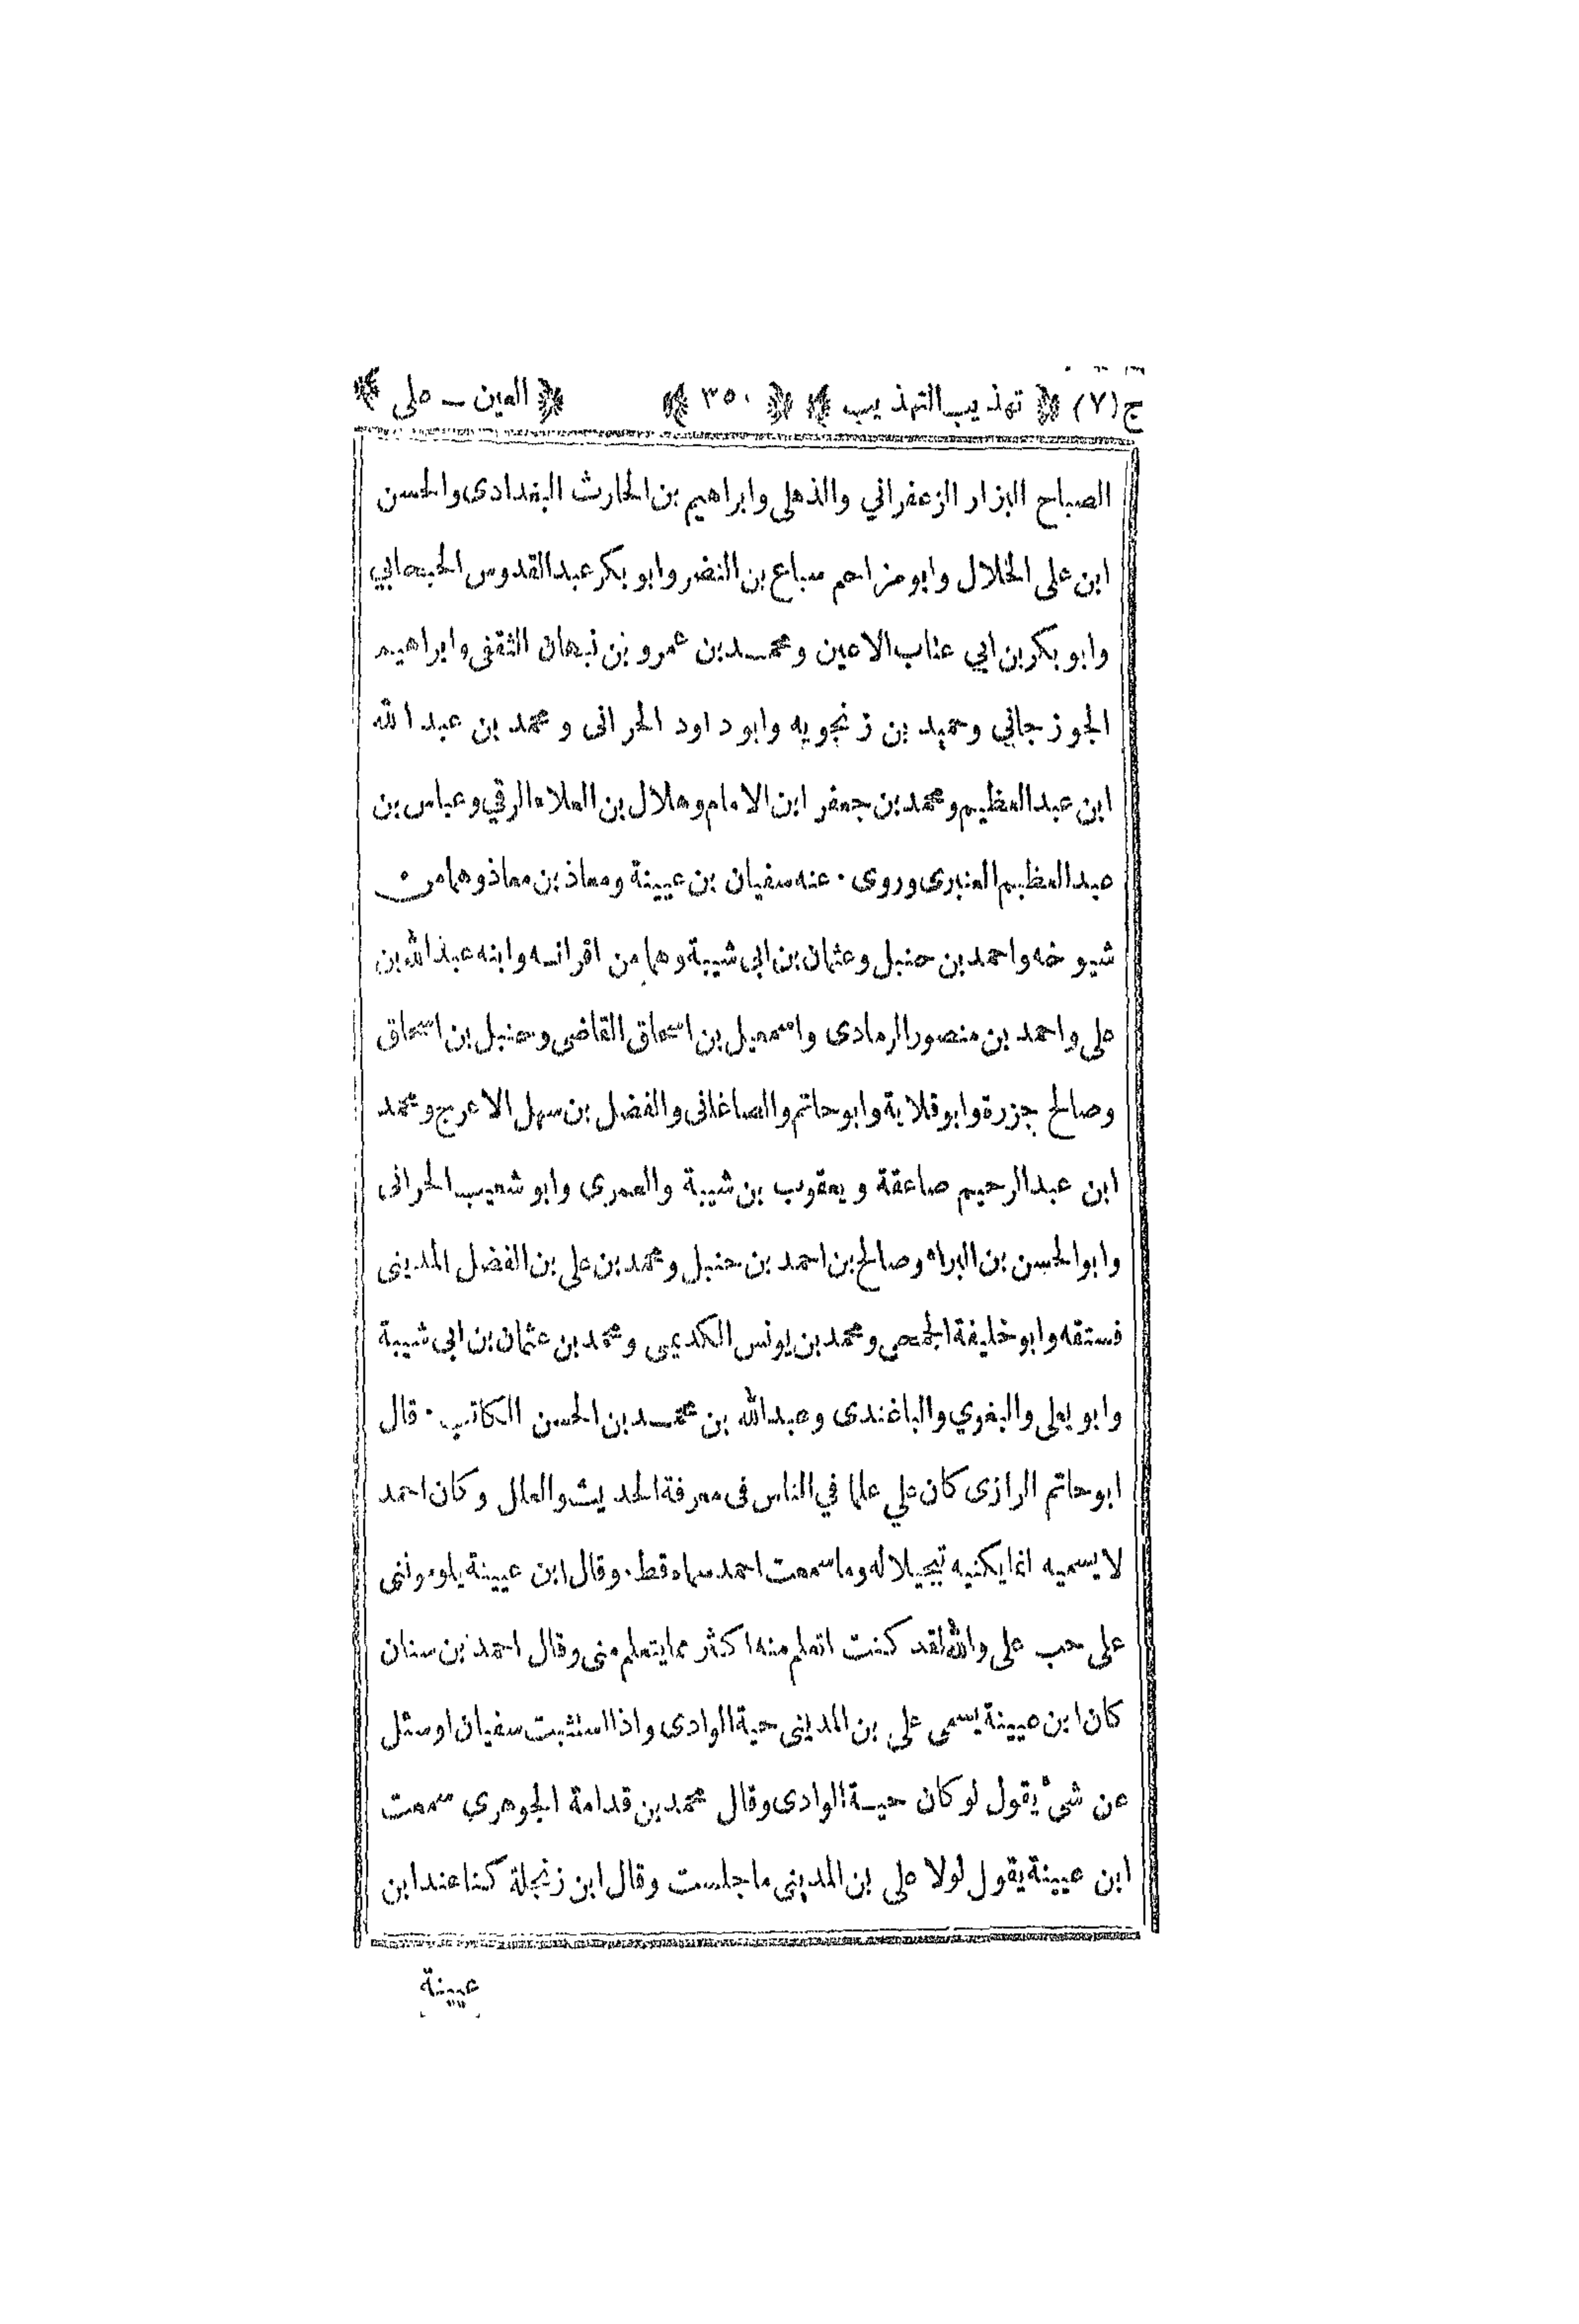 ج (٧) ﴿ تهذيب التهذيب ﴾ ﴿ ٣٥٠ ﴾ ﴿ العين ــ على ﴾
الصباح البزار الزعفراني والذهلى وابراهيم بن الحارث البغدادى والحسن
ابن على الخلال وابو مزاحم سباع بن النضر وابو بكر عبد القدوس الحبحابي
وابو بكر بن ابي عتاب الاعين ومحمد بن عمرو بن نبهان الثقفى وابراهيم
الجوزجاني وحميد بن زنجويه وابو داود الحرانى ومحمد بن عبد الله
ابن عبد العظيم ومحمد بن جعفر ابن الامام وهلال بن العلاء الرقي وعباس بن
عبد العظيم العنبرى وروى . عنه سفيان بن عيينة ومعاذ بن معاذ وهما من
شيوخه واحمد بن حنبل وعثمان بن ابى شيبة وهما من اقرانه وابنه عبد الله بن
على واحمد بن منصور الرمادى واسمعيل بن اسحاق القاضى وحنبل بن اسحاق
وصالح جزرة وابو قلابة وابو حاتم والصاغانى والفضل بن سهل الاعرج ومحمد
ابن عبد الرحيم صاعقة ويعقوب بن شيبة والعمرى وابو شعيب الحرانى
وابو الحسن بن البراء وصالح بن احمد بن حنبل ومحمد بن على بن الفضل المدينى
فستقه وابو خليفة الجمحى ومحمد بن يونس الكديمى ومحمد بن عثمان بن ابى شيبة
وابو يعلى والبغوي والباغندى وعبد الله بن محمد بن الحسن الكاتب . قال
ابو حاتم الرازى كان علي علما في الناس فى معرفة الحديث والعلل وكان احمد
لا يسميه انما يكنيه تبجيلا له وما سمعت احمد سماه قط . وقال ابن عيينة يلومونى
على حب على والله لقد كنت اتعلم منه اكثر مما يتعلم منى وقال احمد بن سنان
كان ابن عيينة يسمى على بن المدينى حية الوادى واذا استثبت سفيان او سئل
عن شئ يقول لو كان حية الوادى وقال محمد بن قدامة الجوهري سمعت
ابن عيينة يقول لولا على بن المدينى ما جلست وقال ابن زنجلة كنا عند ابن
عيينة